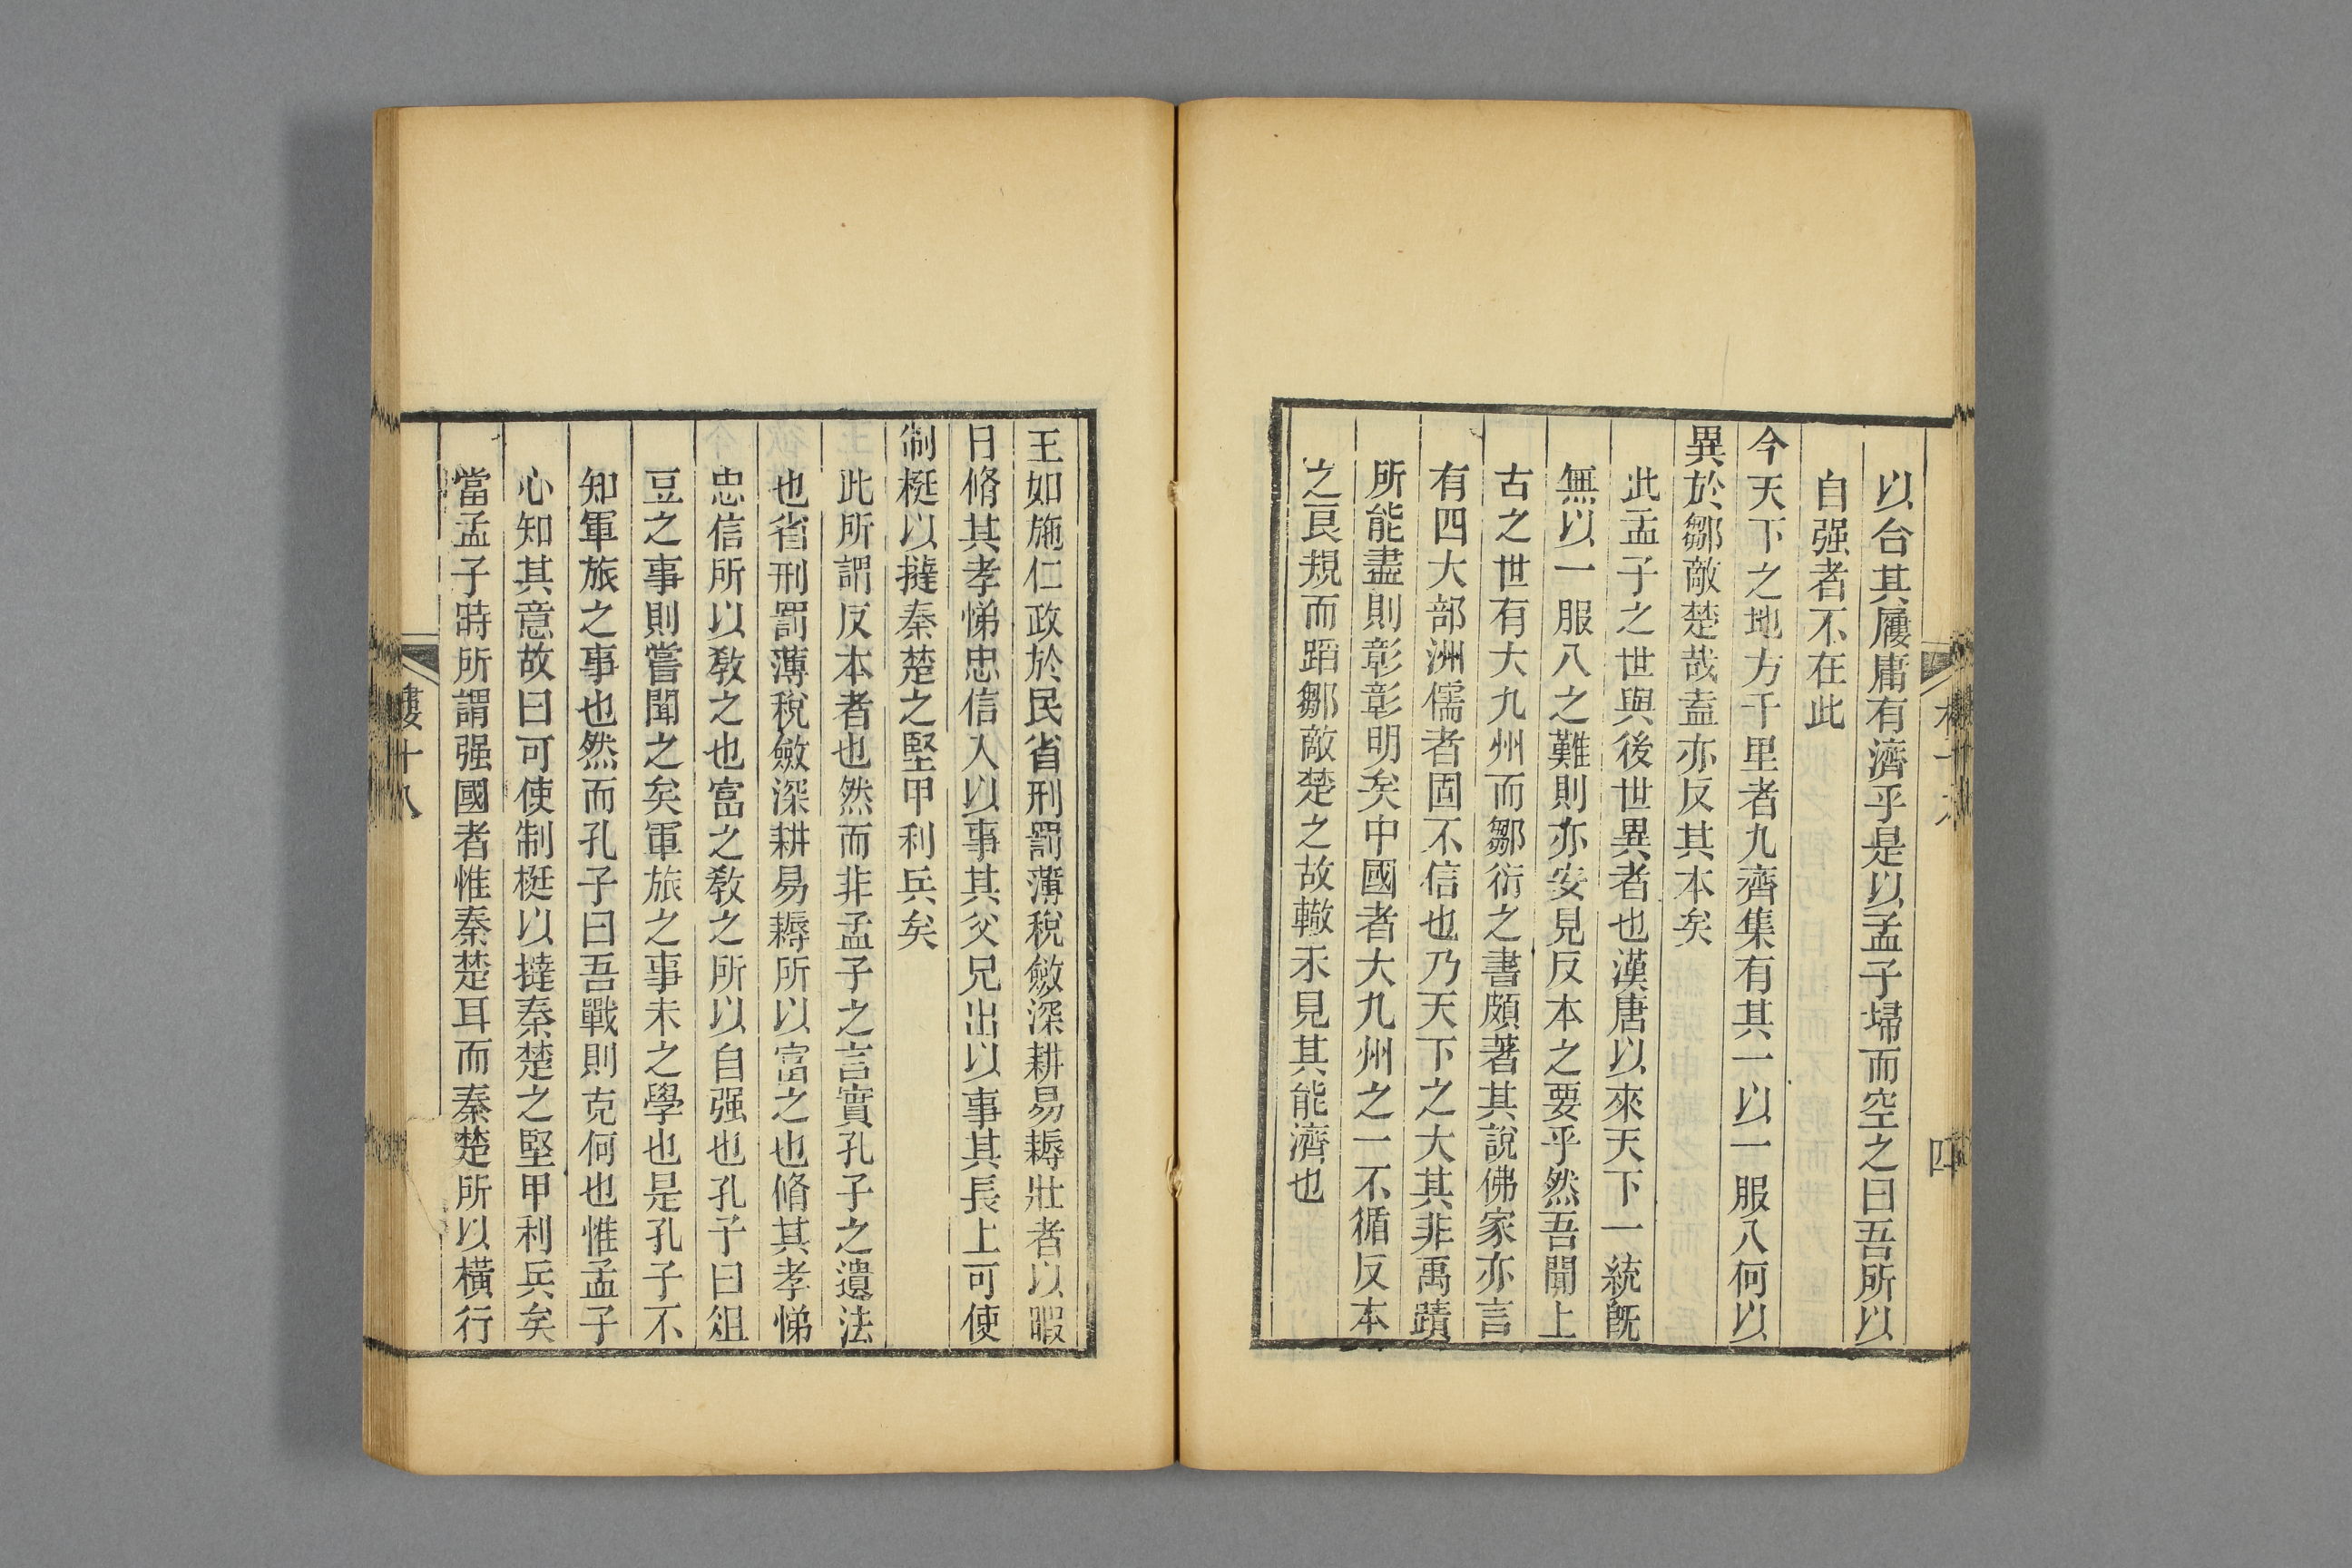 以台其屨庸有濟乎是以孟子埽而空之曰吾所以
自强者不在此
今天下之地方千里者九齊集有其一以一服八何以
異於鄒敵楚哉葢亦反其本矣
此孟子之世與後世異者也漢唐以來天下一統旣
無以一服八之難則亦安見反本之要乎然吾聞上
古之世有大九州而鄒衍之書頗著其說佛家亦言
有四大部洲儒者固不信也乃天下之大其非禹蹟
所能盡則彰彰明矣中國者大九州之一不循反本
之良規而蹈鄒敵楚之故轍未見其能濟也
四
王如施仁政於民省刑罰薄稅斂深耕易耨壯者以暇
日脩其孝悌忠信入以事其父兄出以事其長上可使
制梃以撻秦楚之堅甲利兵矣
此所謂反本者也然而非孟子之言實孔子之遺法
也省刑罰薄稅斂深耕易耨所以富之也脩其孝悌
忠信所以敎之也富之敎之所以自强也孔子曰俎
豆之事則嘗聞之矣軍旅之事未之學也是孔子不
知軍旅之事也然而孔子曰吾戰則克何也惟孟子
心知其意故曰可使制梃以撻秦楚之堅甲利兵矣
當孟子時所謂强國者惟秦楚耳而秦楚所以橫行
十八